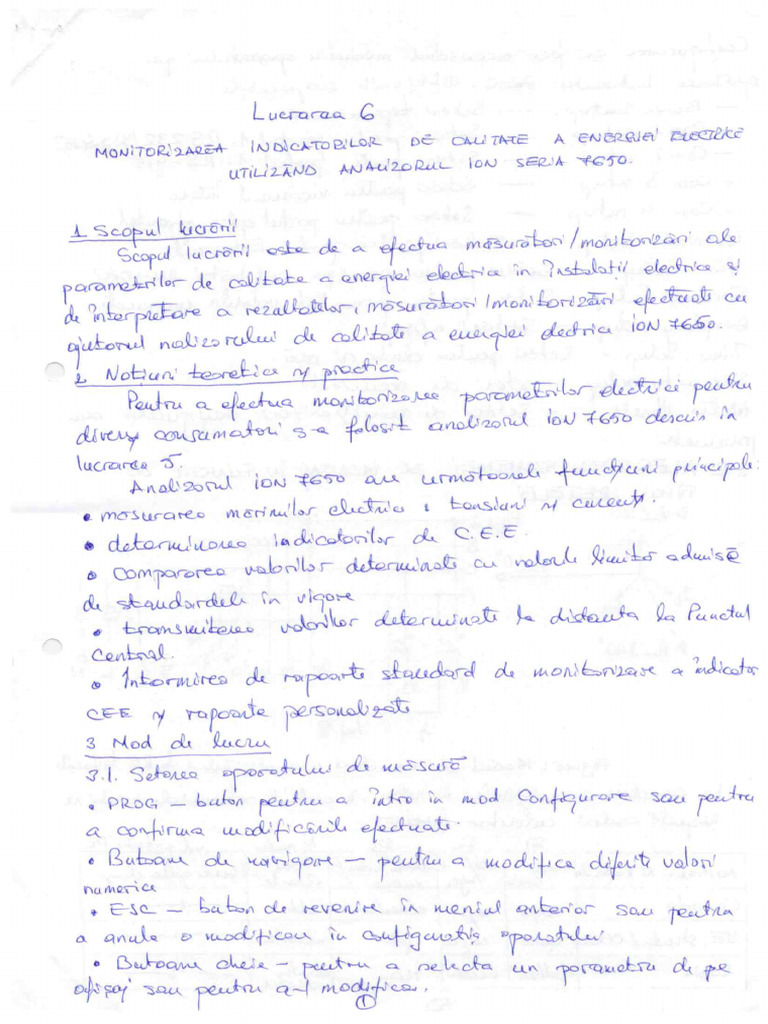 Lucrarea 6
MONITORIZAREA INDICATORILOR DE CALITATE A ENERGIEI ELECTRICE
UTILIZÂND ANALIZORUL ION SERIA 7650.
1. Scopul lucrării
Scopul lucrării este de a efectua măsurători/monitorizări ale
parametrilor de calitate a energiei electrice în instalatii electrice și
de interpretare a rezaltatelor, măsurători/monitorizări efectuate cu
ajutorul nalizorului de calitate a energiei electrice ION 7650.
2. Notiuni teoretice și practice
Pentru a efectua monitorizarea parametrilor electrici pentru
diverși consumatori s-a folosit analizorul ION 7650 descris în
lucrarea 5.
Analizorul ION 7650 are urmatoarele funcțiuni principale:
• măsurarea mărimilor electrice: tensiuni și curenți.
• determinarea indicatorilor de C.E.E.
• compararea valorilor determinate cu valorile limitor admisă
de standardele în vigore
• transmiterea valorilor determinate la distanta la Punctul
Central.
• Intormirea de rapoarte standard de monitorizare a indicator
CEE și rapoarte personalizate
3 Mod de lucru
3.1. Setarea aparatului de măsură
• PROG – buton pentru a intra in mod Configurare sau pentru
a confirma modificările efectuate.
• Butoane de navigare – pentru a modifica diferite valori
numerice
• ESC – buton de revenire în meniul anterior sau pentru
a anula o modificare în configuratia aparatului
• Butoane cheie – pentru a selecta un parametru de pe
afișaj sau pentru a-l modifica.
1